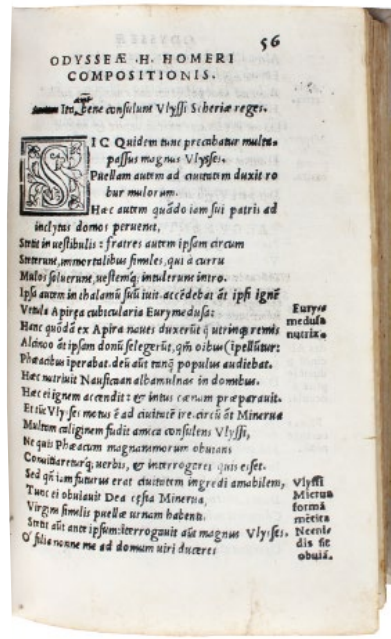 56
ODYSSEÆ .H. HOMERI
COMPOSITIONIS.
Ita bene consulunt Vlyssi Scheriæ reges.
SIC Quidem tunc precabatur multa
passus magnus Vlysses.
Puellam autem ad ciuitatem duxit ro
bur mulorum.
Hæc autem quãdo iam sui patris ad
inclytas domos peruenit,
Stetit in uestibulis: fratres autem ipsam circum
Steterunt, immortalibus similes, qui à curru
Mulos soluerunt, uestemq; intulerunt intro.
Ipsa autem in thalamũ suũ iuit. accẽdebat át ipsi ignẽ
Vetula Apiræa cubicularia Eurymedusa:
Hanc quõdã ex Apira naues duxerũt q̃ utrinq; remis
Alcinoo át ipsam donũ selegerũt, qm̃ oibus
Phæacibus iperabat. deũ aũt tanq̃ populus audiebat.
Hæc nutriuit Nausicaan albamulnas in domibus.
Hæc ei ignem accendit: & intus cœnam præparauit.
Et tũc Vlysses motus ẽ ad ciuitatẽ ire. circũ át Minerua
Multam caliginem fudit amica consulens Vlyssi,
Ne quis Phæacum magnanimorum obuians
Conuitiaretur q; uerbis, & interrogaret quis esset.
Sed qñ iam futurus erat ciuitatem ingredi amabilem,
Tunc ei obuiauit Dea cæsia Minerua,
Virgini similis puellæ urnam habenti.
Stetit aũt ante ipsum: iterrogauit aũt magnus Vlysses.
O' filia nonne me ad domum uiri duceres
Eurym
medusa
nutrix.
Vlyssi
formã
mẽtita
obuiã.